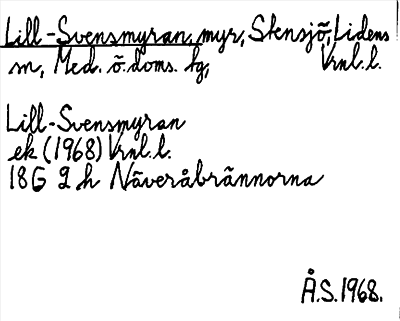 Lill-Svensmyran, myr, Stensjö, Lidens
sn, Med. ö. doms. tg, Vrnl. l.
Lill-Svensmyran
ek (1968) Vrnl. l.
18G 2 h Näveråbrännorna
Å.S. 1968.